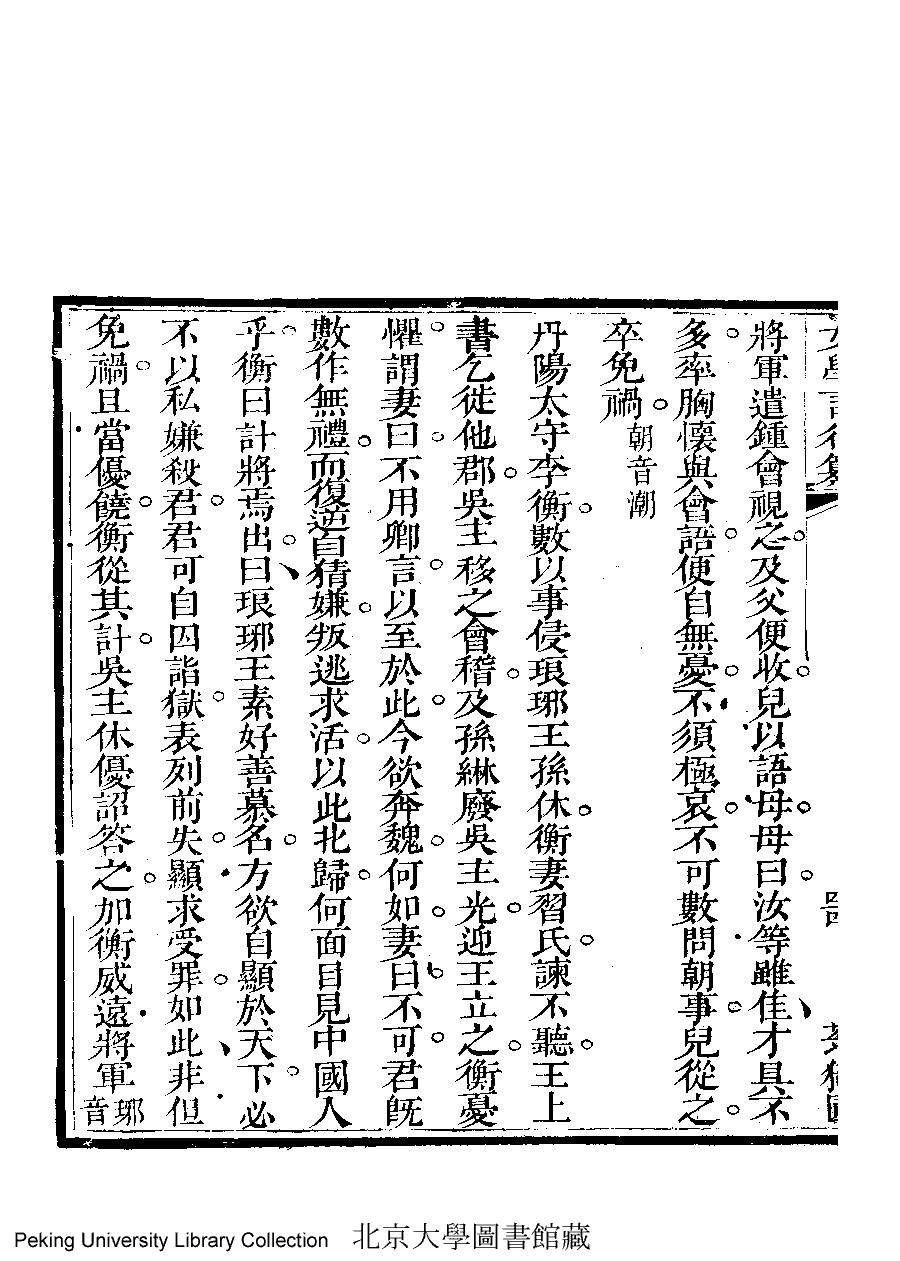 將軍遣鍾會視之及父便收兒以語母母曰汝等雖佳才具不
多率胸懷與會語便自無憂不須極哀不可數問朝事兒從之
卒免禍朝音潮
丹陽太守李衡數以事侵琅琊王孫休衡妻習氏諫不聽王上
書乞徙他郡吳主移之會稽及孫綝廢吳主光迎王立之衡憂
懼謂妻曰不用卿言以至於此今欲奔魏何如妻曰不可君既
數作無禮而復逆自猜嫌叛逃求活以此北歸何面目見中國人
乎衡曰計將焉出曰琅琊王素好善慕名方欲自顯於天下必
不以私嫌殺君君可自囚詣獄表列前失顯求受罪如此非但
免禍且當優饒衡從其計吳主休優詔答之加衡威遠將軍琊音
Peking University Library Collection 北京大學圖書館藏